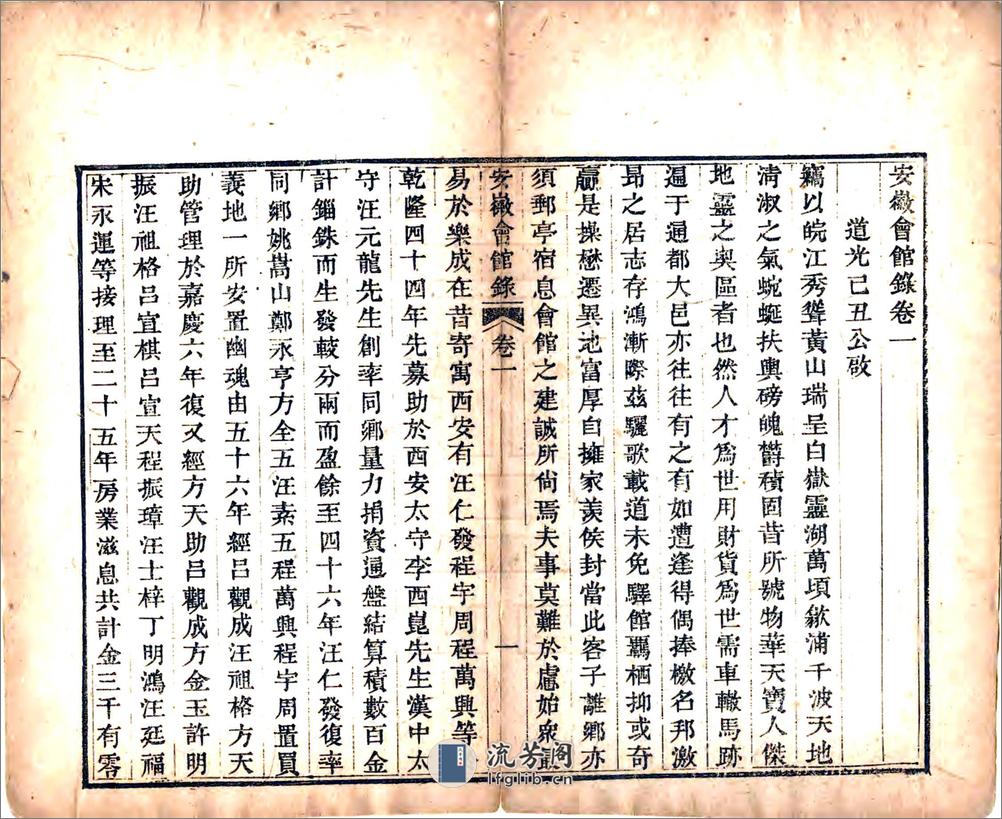 安徽會館錄卷一
道光己丑公啟
竊以皖江秀聳黃山瑞呈白嶽靈湖萬頃歙浦千波天地
淸淑之氣蜿蜒扶輿磅魄欝積固昔所號物華天寶人傑
地靈之奧區者也然人才爲世用財貨爲世需車轍馬跡
遍于通都大邑亦往往有之有如遭逢得偶捧檄名邦激
昻之居志存鴻漸際茲驪歌載道未免驛館羈栖抑或奇
贏是操懋遷異地富厚自擁家羨侯封當此客子離鄉亦
須郵亭宿息會館之建誠所尙焉夫事莫難於慮始衆最
安徽會館錄 卷一 一
易於樂成在昔寄寓西安有汪仁發程宇周程萬興等
乾隆四十四年先募助於西安太守李酉崑先生漢中太
守汪元龍先生創率同鄉量力捐資通盤結算積數百金
計錙銖而生發較分兩而盈餘至四十六年汪仁發復率
同鄉姚嵩山鄭永亨方全五汪素五程萬興程宇周置買
義地一所安置幽魂由五十六年經呂觀成汪祖格方天
助管理於嘉慶六年復又經方天助呂觀成方金玉許明
振汪祖格呂宣棋呂宣天程振璋汪士梓丁明鴻汪廷福
宋永運等接理至二十五年房業滋息共計金三千有零
流芳閣
lfglib.cn